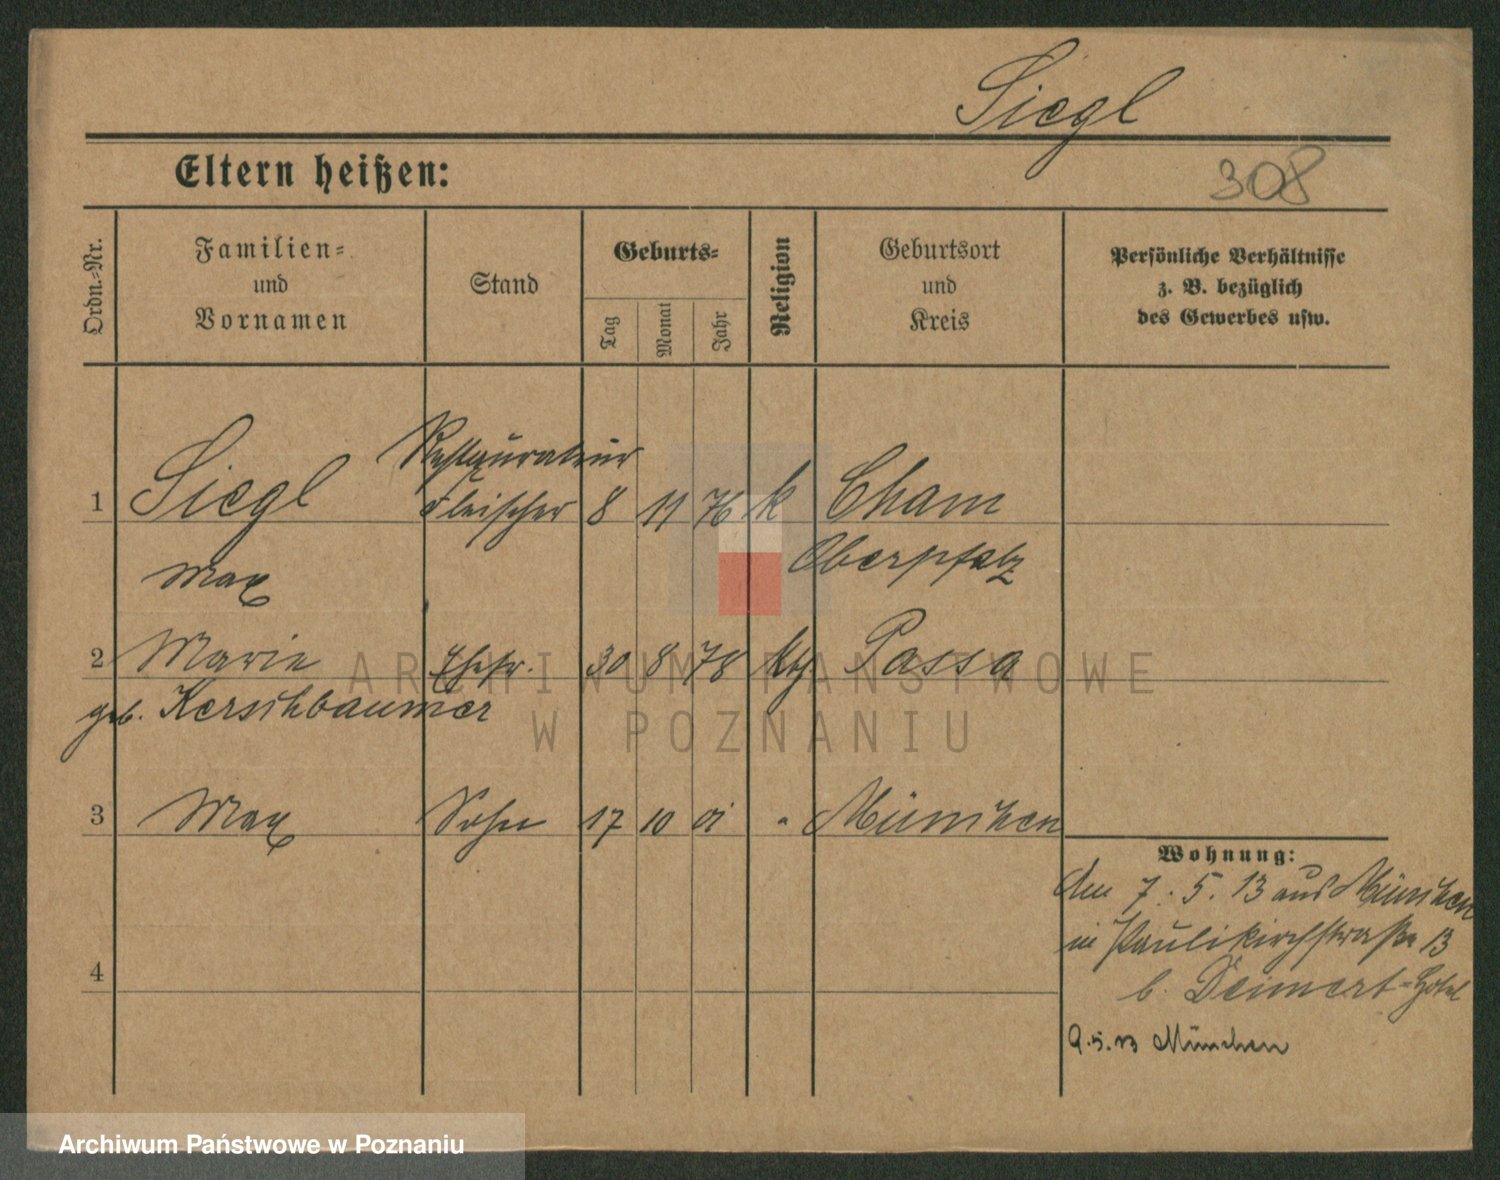 Siegl
Eltern heißen:
308
Ordn.-Nr.
Familien-
und
Vornamen
Stand
Geburts-
Tag
Monat
Jahr
Religion
Geburtsort
und
Kreis
Persönliche Verhältnisse
z. B. bezüglich
des Gewerbes usw.
Restaurateur
1 Siegl Fleischer 8 11 76 k Cham
Max Oberpfalz
2 Marie Ehefr. 30 8 78 kth Passa
geb. Kerschbaumer
3 Max Sohn 17 10 01 " München
Wohnung:
Am 7. 5. 13 aus München
in Paulikirchstraße 13
b. Deimert-Hotel
4
9.5.13 München
ARCHIWUM PAŃSTWOWE
W POZNANIU
Archiwum Państwowe w Poznaniu